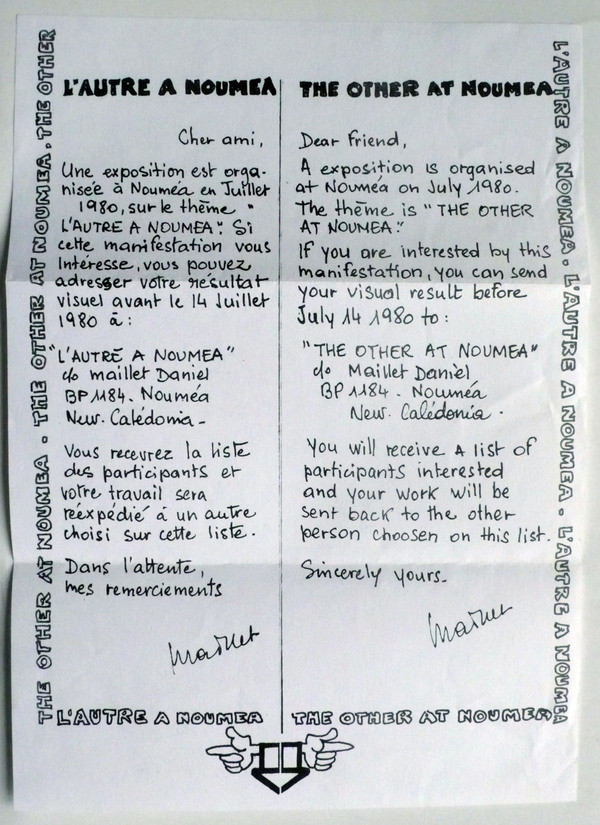 L'AUTRE A NOUMEA
Cher ami,
Une exposition est orga-
nisée à Nouméa en Juillet
1980, sur le thème "
L'AUTRE A NOUMEA". Si
cette manifestation vous
Intéresse, vous pouvez
adresser votre résultat
visuel avant le 14 Juillet
1980 à :
"L'AUTRE A NOUMEA"
c/o maillet Daniel
BP 1184. Nouméa
New. Calédonia -
Vous recevrez la liste
des participants et
votre travail sera
réexpédié à un autre
choisi sur cette liste.
Dans l'attente,
mes remerciements
Maillet
L'AUTRE A NOUMEA
THE OTHER AT NOUMEA
Dear Friend,
A exposition is organised
at Nouméa on July 1980.
The thème is "THE OTHER
AT NOUMEA."
If you are interested by this
manifestation, you can send
your visual result before
July 14 1980 to :
"THE OTHER AT NOUMEA"
c/o Maillet Daniel
BP 1184. Nouméa
New. Calédonia.
You will receive a list of
participants interested
and your work will be
sent back to the other
person choosen on this list.
Sincerely yours_
Maillet
THE OTHER AT NOUMEA
THE OTHER AT NOUMEA. THE OTHER AT NOUMEA. THE OTHER
L'AUTRE A NOUMEA. L'AUTRE A NOUMEA. L'AUTRE A NOUMEA